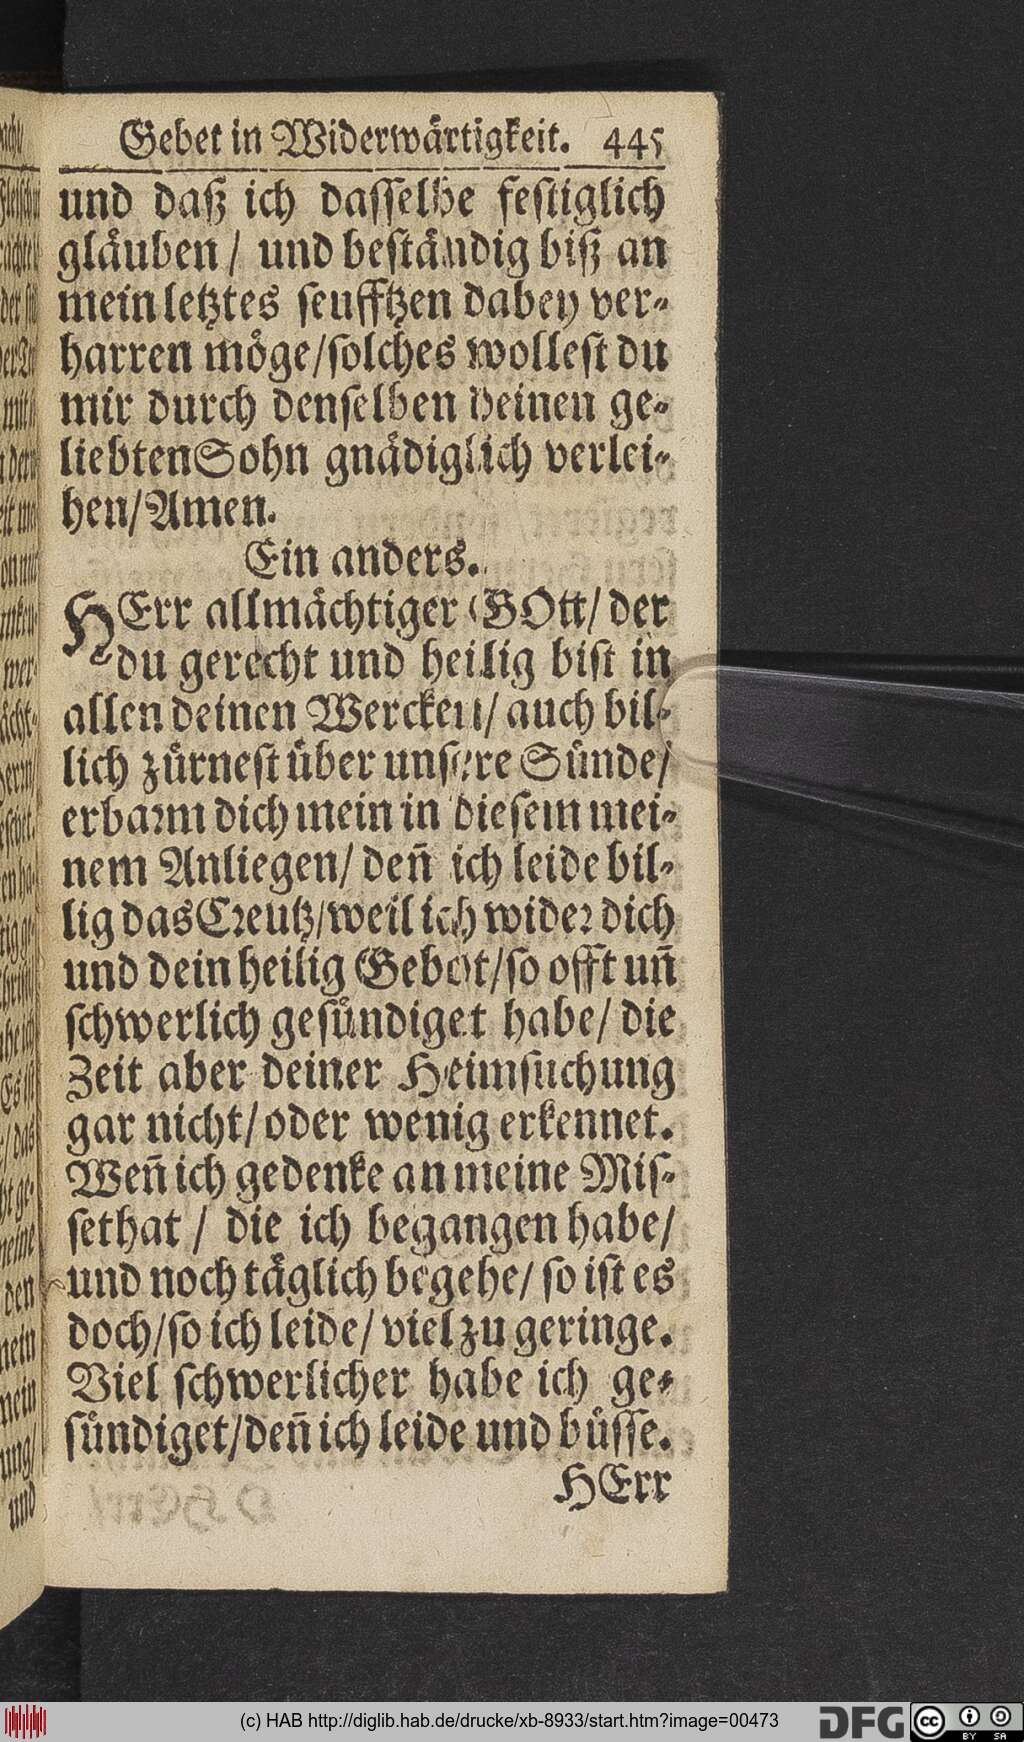 Gebet in Widerwärtigkeit. 445
und daß ich dasselbe festiglich
gläuben / und beständig biß an
mein letztes seufftzen dabey ver-
harren möge/solches wollest du
mir durch denselben deinen ge-
liebten Sohn gnädiglich verlei-
hen/Amen.
Ein anders.
HErr allmächtiger GOtt/ der
du gerecht und heilig bist in
allen deinen Wercken/ auch bil-
lich zürnest über unsere Sünde/
erbarm dich mein in diesem mei-
nem Anliegen/ deñ ich leide bil-
lig das Creutz/weil ich wider dich
und dein heilig Gebot/so offt uñ
schwerlich gesündiget habe/ die
Zeit aber deiner Heimsuchung
gar nicht/oder wenig erkennet.
Weñ ich gedenke an meine Mis-
sethat / die ich begangen habe/
und noch täglich begehe/ so ist es
doch/so ich leide/ viel zu geringe.
Viel schwerlicher habe ich ge-
sündiget/deñ ich leide und büsse.
HErr
(c) HAB http://diglib.hab.de/drucke/xb-8933/start.htm?image=00473
DFG
cc
BY SA